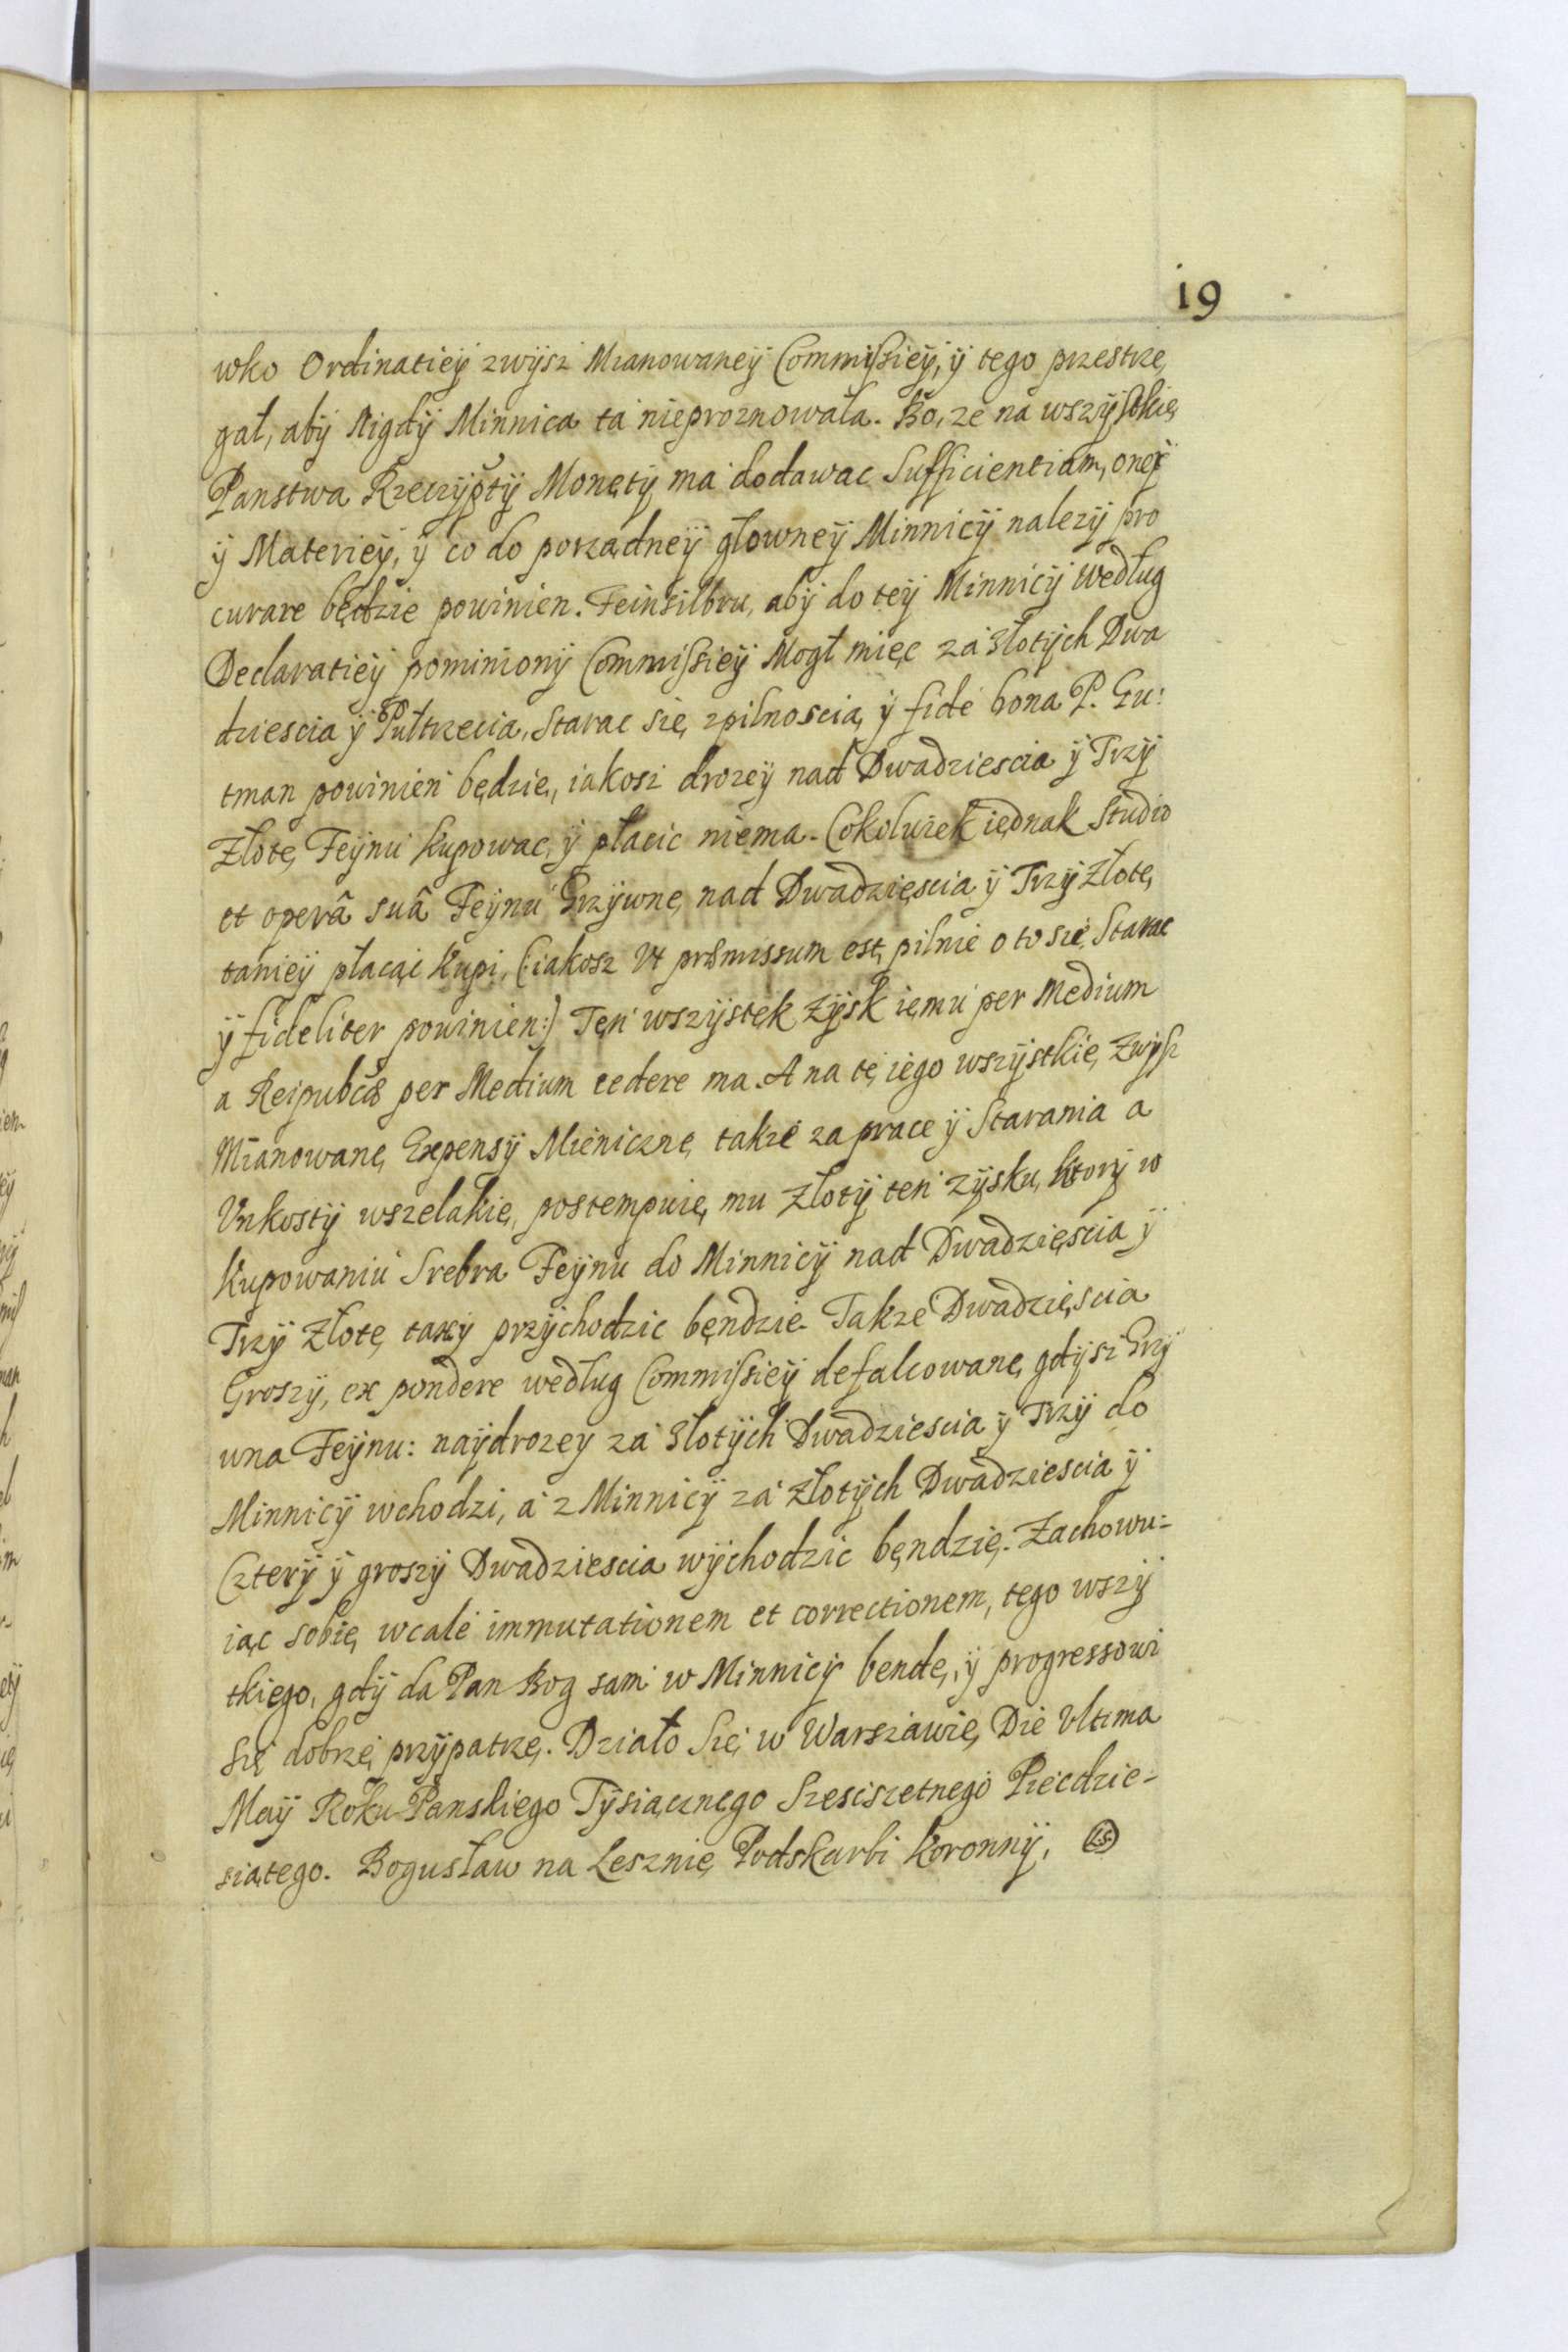 19
wko Ordinatieÿ zwÿsz Mianowaneÿ Commissieÿ, ÿ tego przestrze
gał, abÿ Nigdÿ Minnica ta nieproznowała. Bo, ze na wszÿstkię
Panstwa Rzeczÿptÿ Monetÿ ma dodawac Sufficientiam, oneÿ
ÿ Materieÿ, ÿ co do porządneÿ głowneÿ Minnicÿ nalezÿ pro
curare będzie powinien. Feinsilbru, abÿ do teÿ Minnicÿ według
Declaratieÿ pominionÿ Commissieÿ Mogł mięc za Złotÿch Dwa
dziescia ÿ Pułtrzecia, Starac się, zpilnoscią ÿ fide bona P. Gu:
tman powinien będzie, iakosz drozeÿ nad Dwadziescia ÿ Trzÿ
Złotę, Feÿnu kupowac, ÿ płacic niema. Cokolwiek iędnak Studio
et operâ suâ Feÿnu Grzÿwnę, nad Dwadzięscia ÿ Trzÿ Złotę,
tanieÿ płacąc kupi, (:iakosz Vt præmissum est, pilnie o to się, Starac
ÿ fideliter powinien:) Tęn wszÿstęk zÿsk ięmu per Medium
a Reipubcæ per Medium cedere ma. A na tę iego wszÿstkię, Zwÿsz
Mianowanę, Expensÿ Mięnicznę, takze za pracę ÿ Starania a
Vnkostÿ wszelakię, postempuię, mu złotÿ ten zÿsku, ktorÿ w
kupowaniu Srebra Feÿnu do Minnicÿ nad Dwadzięscia ÿ
Trzÿ Złotę, taxÿ przÿchodzic bęndzie. Takze Dwadzięscia
Groszÿ, ex pondere według Commissieÿ defalcowanę, gdÿsz Grzÿ
wna Feÿnu: naÿdrozeÿ za Złotÿch Dwadziescia ÿ Trzÿ do
Minnicÿ wchodzi, a z Minnicÿ za Złotÿch Dwadziescia ÿ
Czterÿ ÿ groszÿ Dwadziescia wÿchodzic bęndzię. Zachowu=
iąc sobię, wcale immutationem et correctionem, tego wszÿ
tkiego, gdÿ da Pan Bog sam w Minnicÿ bendę, ÿ progressowi
się dobrze, przÿpatrzę. Działo Się w Warszawię, Die Vltima
Maÿ Roku Panskiego Tÿsiącznego Szesciszetnego Pięcdzie-
siątego. Bogusław na Lesznię, Podskarbi koronnÿ. LS.